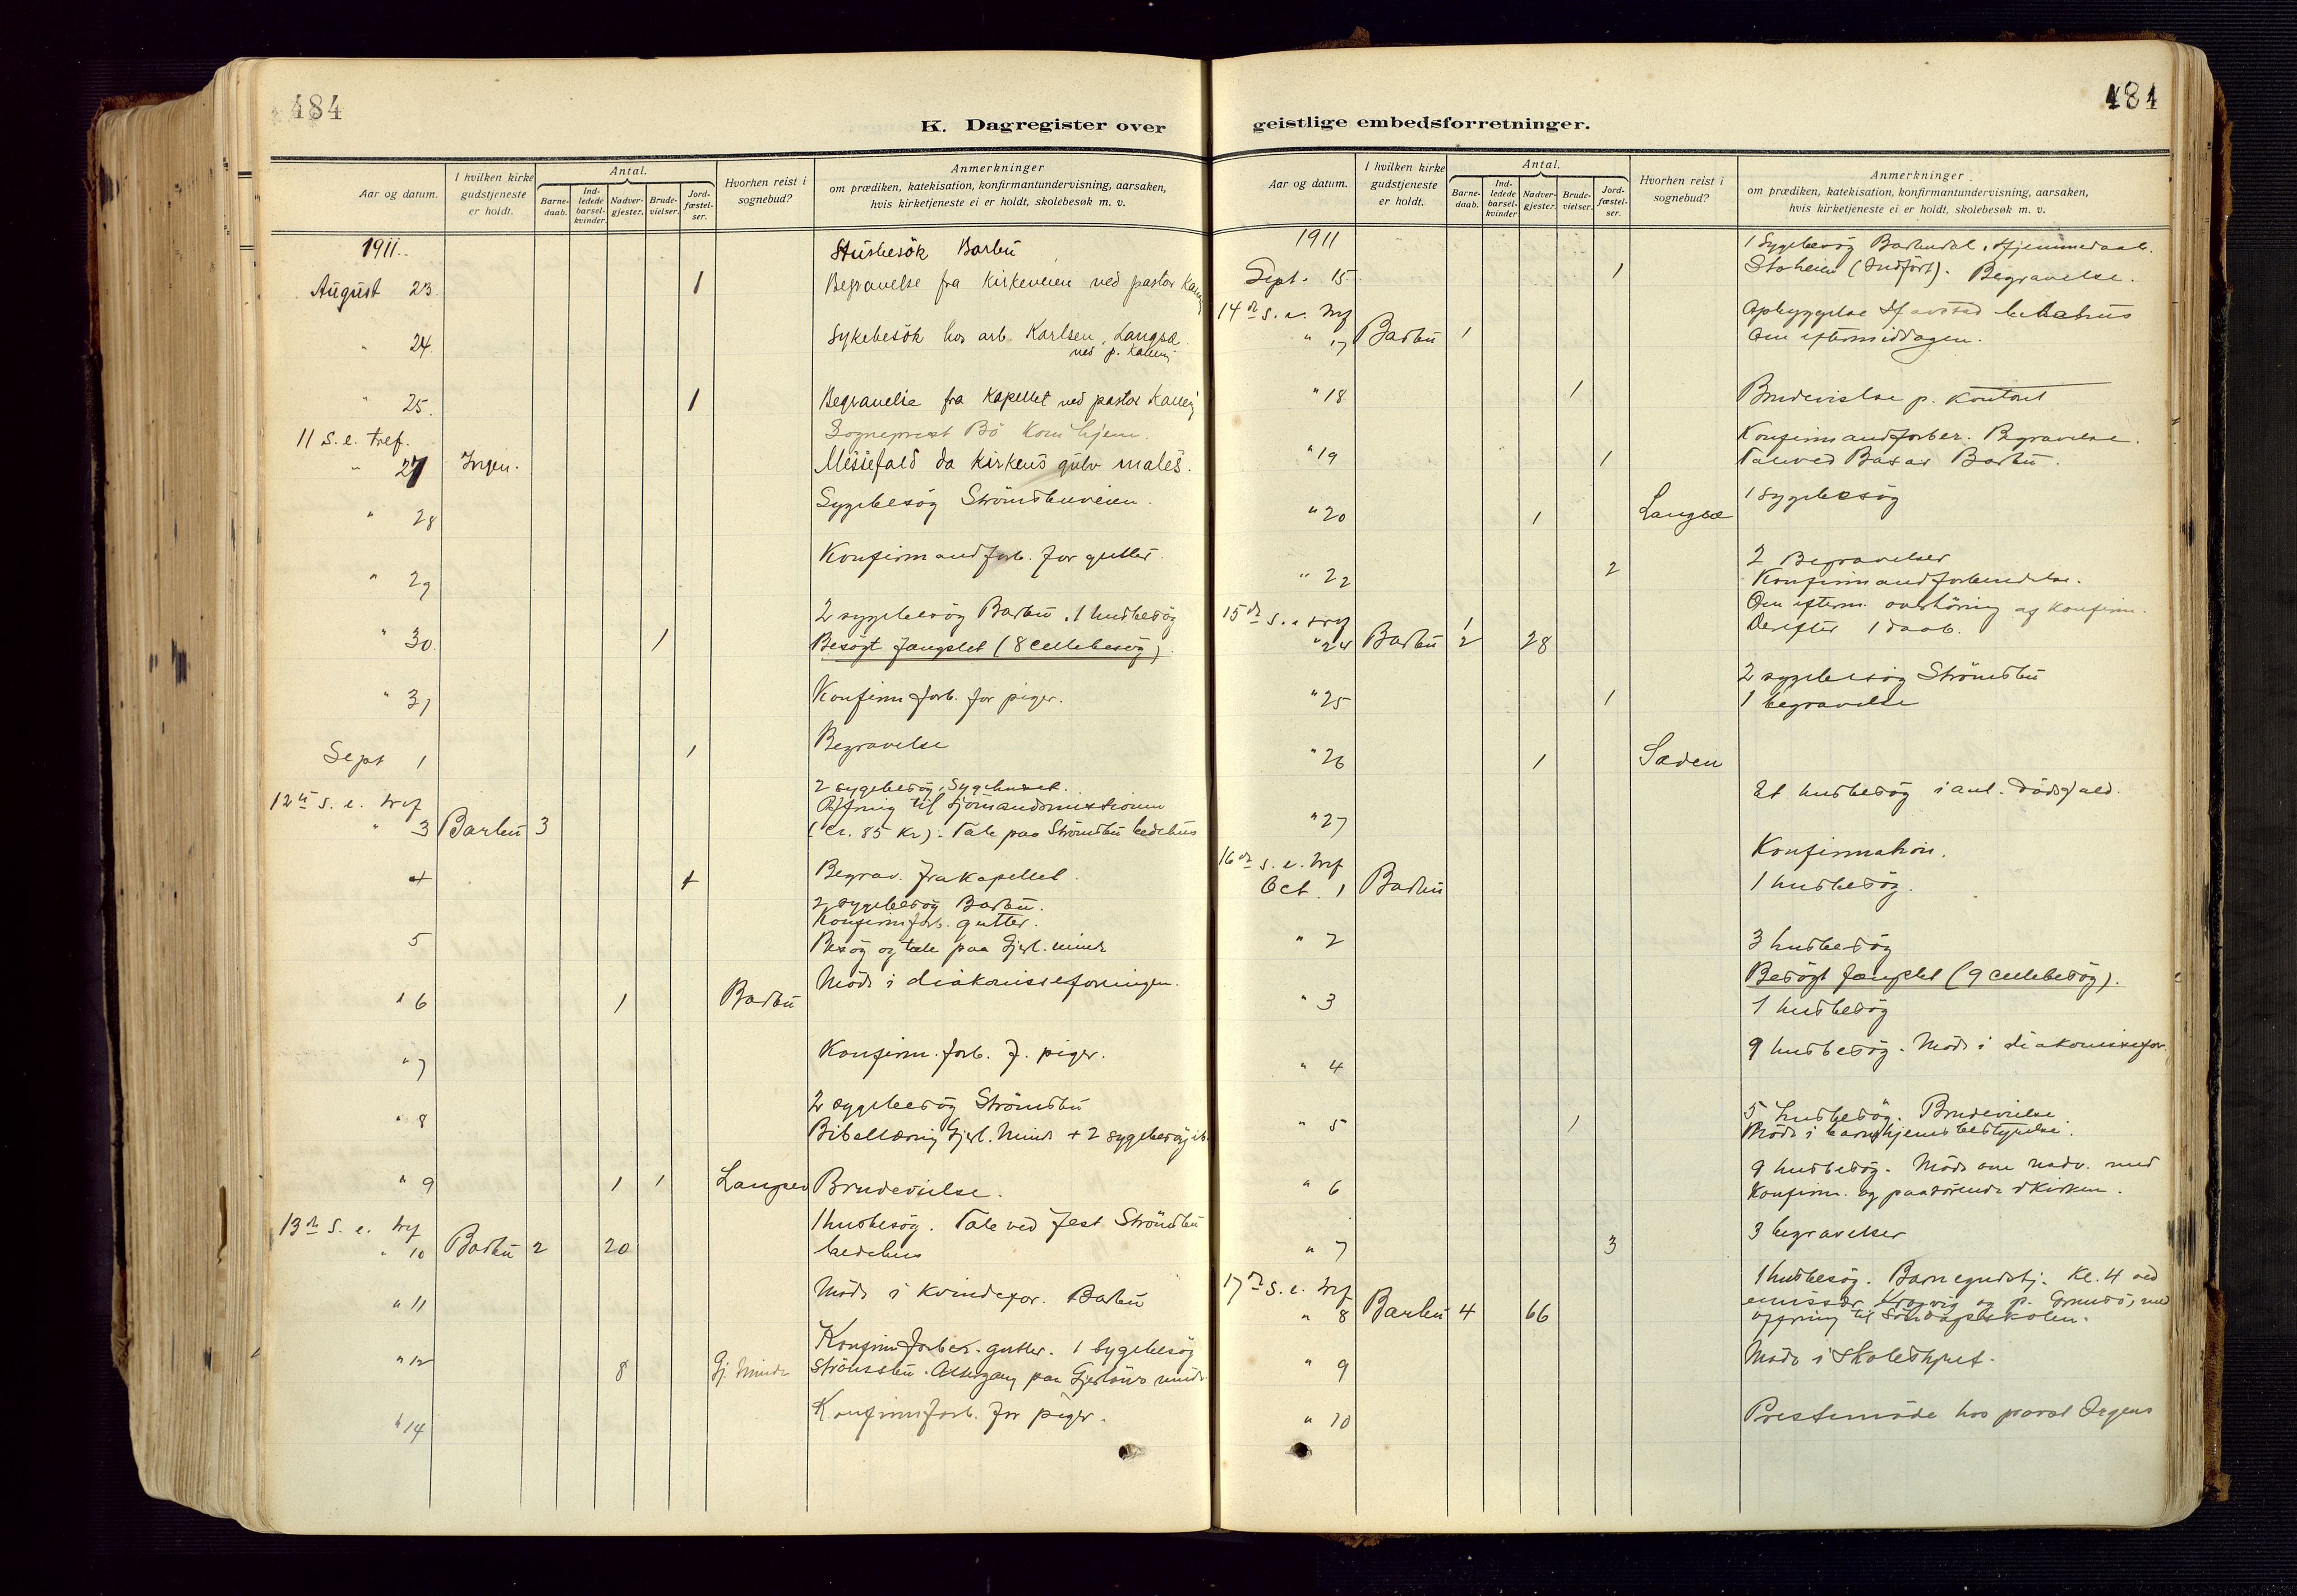 484
K. Dagregister over
Aar og datum.
I hvilken kirke gudstjeneste er holdt.
Antal.
Barne-daab.
Ind-ledede barsel-kvinder.
Nadver-gjester.
Brude-vielser.
Jord-fæstel-ser.
Hvorhen reist i sognebud?
Anmerkninger
om prædiken, katekisation, konfirmantundervisning, aarsaken,
hvis kirketjeneste ei er holdt, skolebesøk m. v.
1911.
Husbesök Barbu
August 23. 1 Begravelse fra Kirkeveien ved pastor
" 24 Sykebesök hos arb. Karlsen, Langsæ.
ved p.
" 25. 1 Begravelse fra Kapellet ved pastor
Sogneprest Bö kom hjem.
11 S. e. tref.
" 27 Ingen. Messefald da Kirkens gulv males.
" 28 Sygebesög Strömsbuveien.
" 29 Konfirmandforb. for gutter.
" 30. 1 2 sygebesög Barbu. 1 husbesög
Besögt fængslet (8 cellebesög).
" 31 Konfirm forb. for piger.
Sept 1 1 Begravelse
2 sygebesög, Sygehuset.
12te S. e. tref
" 3 Barbu 3 Offring til Sjömandsmissionen
(cr. 85 Kr). Tale paa Strömsbu bedehus
4 1 Begrav. fra Kapellet.
2 sygebesög Barbu.
Konfirm forb. gutter.
5 Besög og tale paa Gjerl. minde
" 6 1 Barbu Möde i diakonisseforeningen.
" 7 Konfirm. forb. f. piger.
" 8 2 sygebesög Strömsbu
Bibellæsning Gjerl. Minde + 2 sygebesög
" 9 1 1 Langsev Brudevielse.
13de S. e. tref
" 10 Barbu 2 20 1 husbesög. Tale ved fest Strömsbu
bedehus
" 11 Möde i Kvindefor. Barbu
" 12 8 Gj. Minde Konfirm forber. gutter. 1 sygebesög
Strömsbu. Altergang paa Gjerlöws minde
" 14 Konfirm forb. for piger.
484
geistlige embedsforretninger.
Aar og datum.
I hvilken kirke gudstjeneste er holdt.
Antal.
Barne-daab.
Ind-ledede barsel-kvinder
Nadver-gjester.
Brude-vielser.
Jord-fæstel-ser.
Hvorhen reist i sognebud?
Anmerkninger
om prædiken, katekisation, konfirmantundervisning, aarsaken,
hvis kirketjeneste ei er holdt, skolebesøk m. v.
1911
1 Sygebesög Barbudal, Hjemmedaab.
Sept. 15 1 Stoheien (Indfört). Begravelse.
14de S. e. tref
" 17 Barbu 1 Opbyggelse Havstad bedehus
Om eftermiddagen.
" 18 1 Brudevielse p. Kontoret
" 19 1 Konfirmandforber. Begravelse.
Tale ved Basar Barbu.
" 20 1 Langsæ 1 sygebesög
" 22 2 2 Begravelser
Konfirmandforberedelse.
15de S. e. tref
" 24 Barbu 1 2 28 Om efterm. overhöring af konfirm.
Derefter 1 daab.
" 25 1 2 sygebesög Strömsbu
1 begravelse
" 26 1 Saden
" 27 Et husbesög i anl. dödsfald.
16de S. e. tref
Oct. 1 Barbu Konfirmation.
1 husbesög.
" 2 3 husbesög
Besögt fængslet (9 cellebesög).
" 3 1 husbesög
" 4 9 husbesög. Möde i diakonissefor.
" 5 1 5 husbesög. Brudevielse
Möde i barnehjems bestyrelse.
" 6 9 husbesög. Möde om nadv. med
Konfirm. og paarörende i Kirken.
" 7 3 3 begravelser
17de S. e. tref
" 8 Barbu 4 66 1 husbesög. Barnegudstj. Kl. 4 ved
emissær og p. med
offring til Söndagsskolen.
" 9 Möde i Skolestyret.
" 10 Prestemöde hos provst